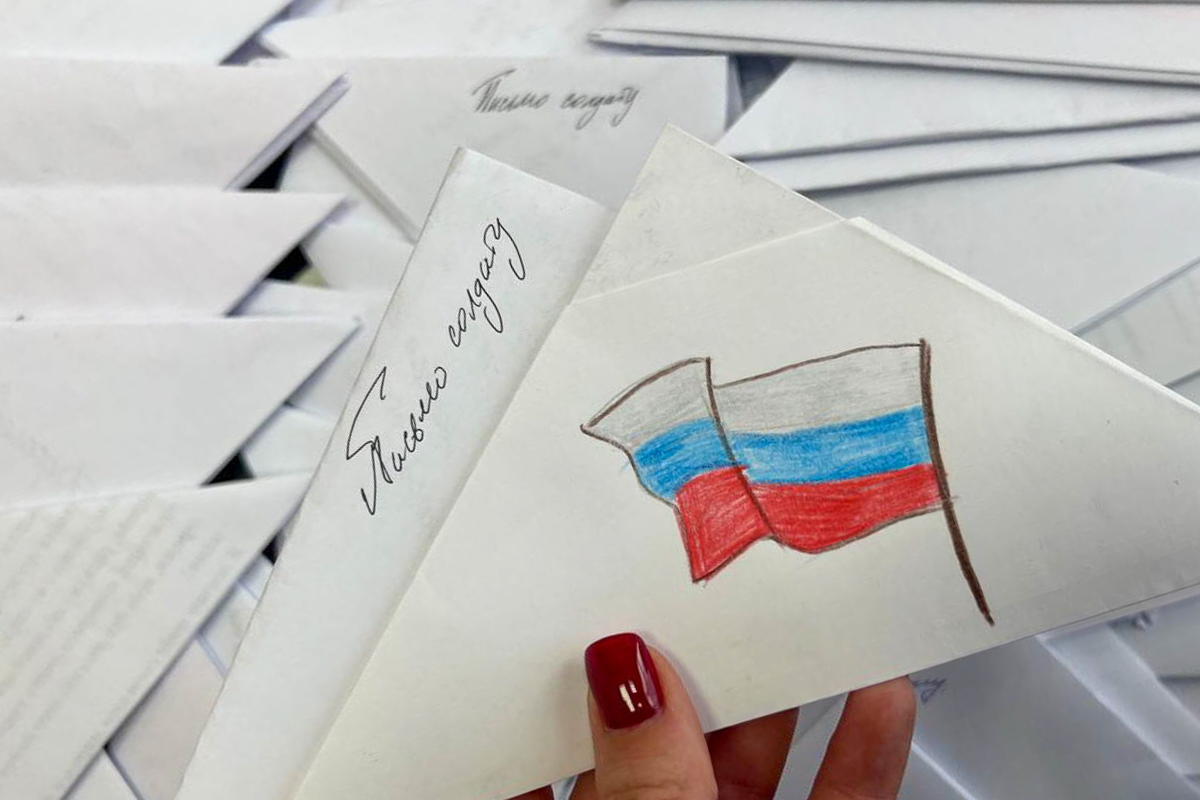 Письмо солдату
Письмо солдату